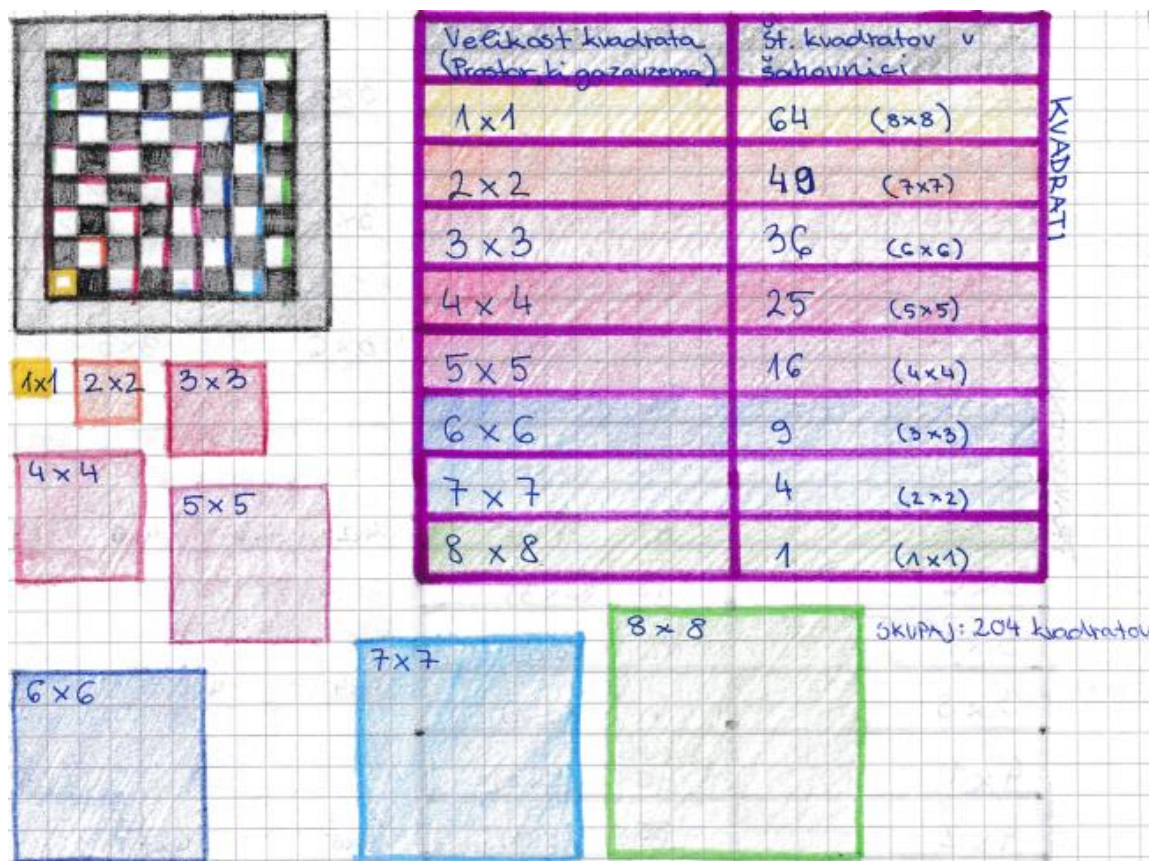 Velikost kvadrata
(Prostor, ki ga zauzema)
Št. kvadratov v
šahovnici
1 x 1 64 (8x8)
2 x 2 49 (7x7)
3 x 3 36 (6x6)
4 x 4 25 (5x5)
5 x 5 16 (4x4)
6 x 6 9 (3x3)
7 x 7 4 (2x2)
8 x 8 1 (1x1)
KVADRATI
1x1
2 x 2
3 x 3
4 x 4
5 x 5
6 x 6
7 x 7
8 x 8
SKUPAJ: 204 kvadratov